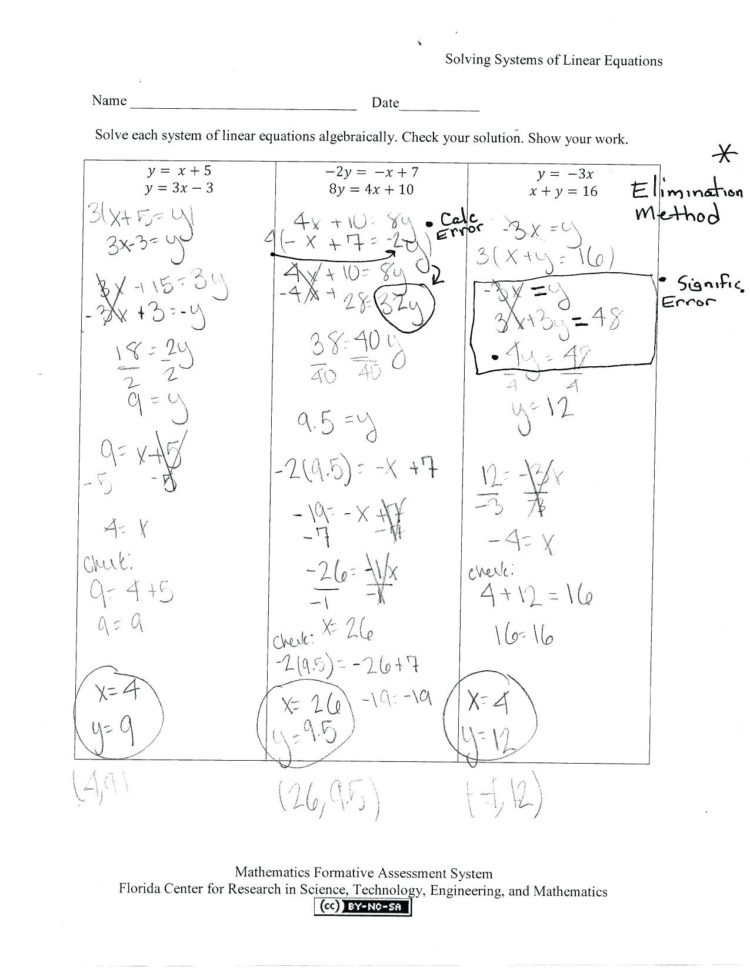 Solving Systems of Linear Equations
Name
Date
Solve each system of linear equations algebraically. Check your solution. Show your work.
y = x + 5
y = 3x − 3
3(x+5=y)
3x-3=y
3x+15=3y
-3x+3=-y
18=2y
2 2
9=y
9=x+5
-5 -5
4=x
Check:
9=4+5
9=9
x=4
y=9
(4,9)
−2y = −x + 7
8y = 4x + 10
4x+10=8y
4(-x+7=-2y)
• Calc
Error
4x+10=8y
-4x+28=32y
38=40y
40 40
9.5=y
-2(9.5)=-x+7
-19=-x+7
-7 -7
-26=-1x
-1 -1
x=26
Check:
-2(9.5)=-26+7
-19=-19
x=26
y=9.5
(26,9.5)
y = −3x
x + y = 16
-3x=y
3(x+y=16)
-3x=y
3x+3y=48
• 4y=48
4 4
y=12
12=-3x
-3 -3
-4=x
check:
4+12=16
16=16
x=4
y=12
(-4,12)
*
Elimination
Method
• Signific.
Error
Mathematics Formative Assessment System
Florida Center for Research in Science, Technology, Engineering, and Mathematics
(cc) BY-NC-SA